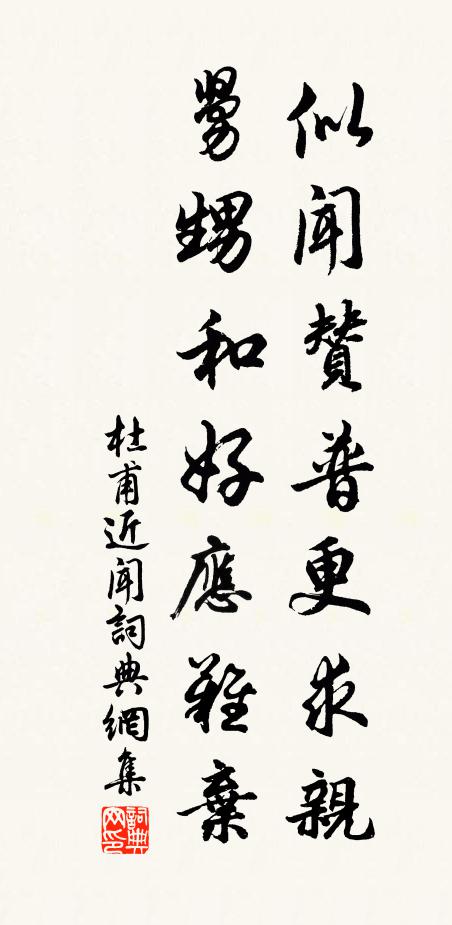 似聞贊普更求親
舅甥和好應難棄
杜甫近聞詞典網集
詞典网印